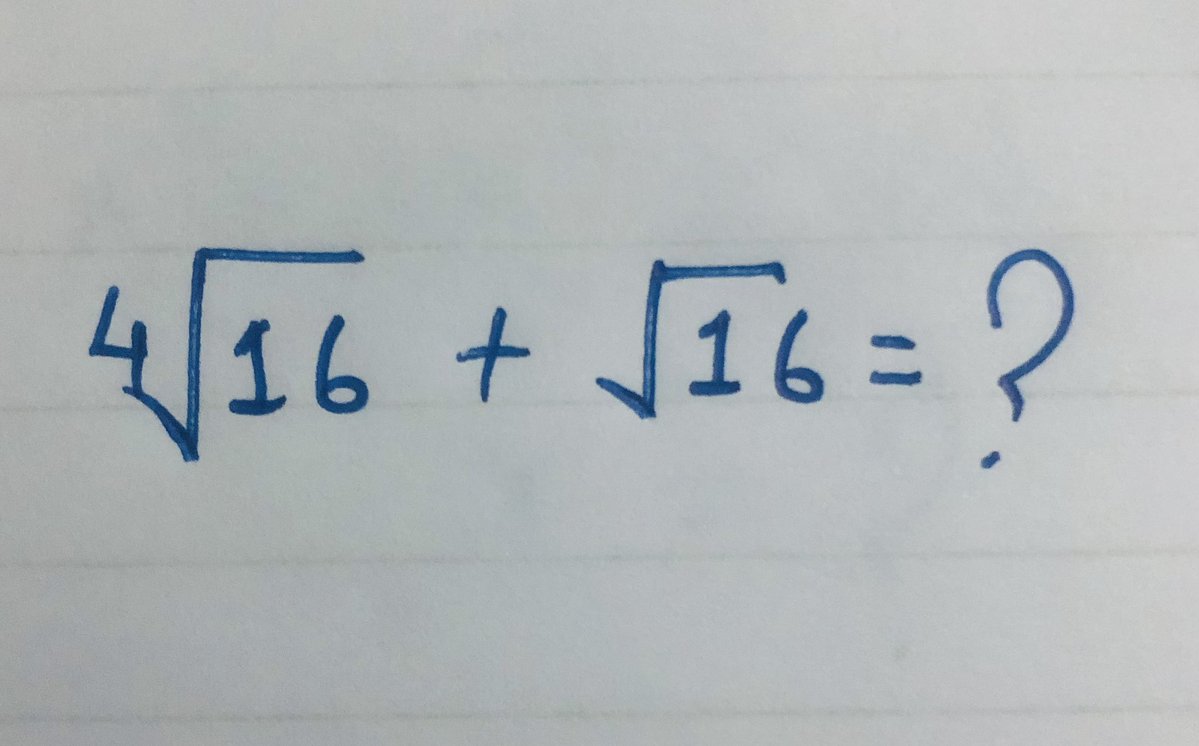 ∜16 + √16 = ?